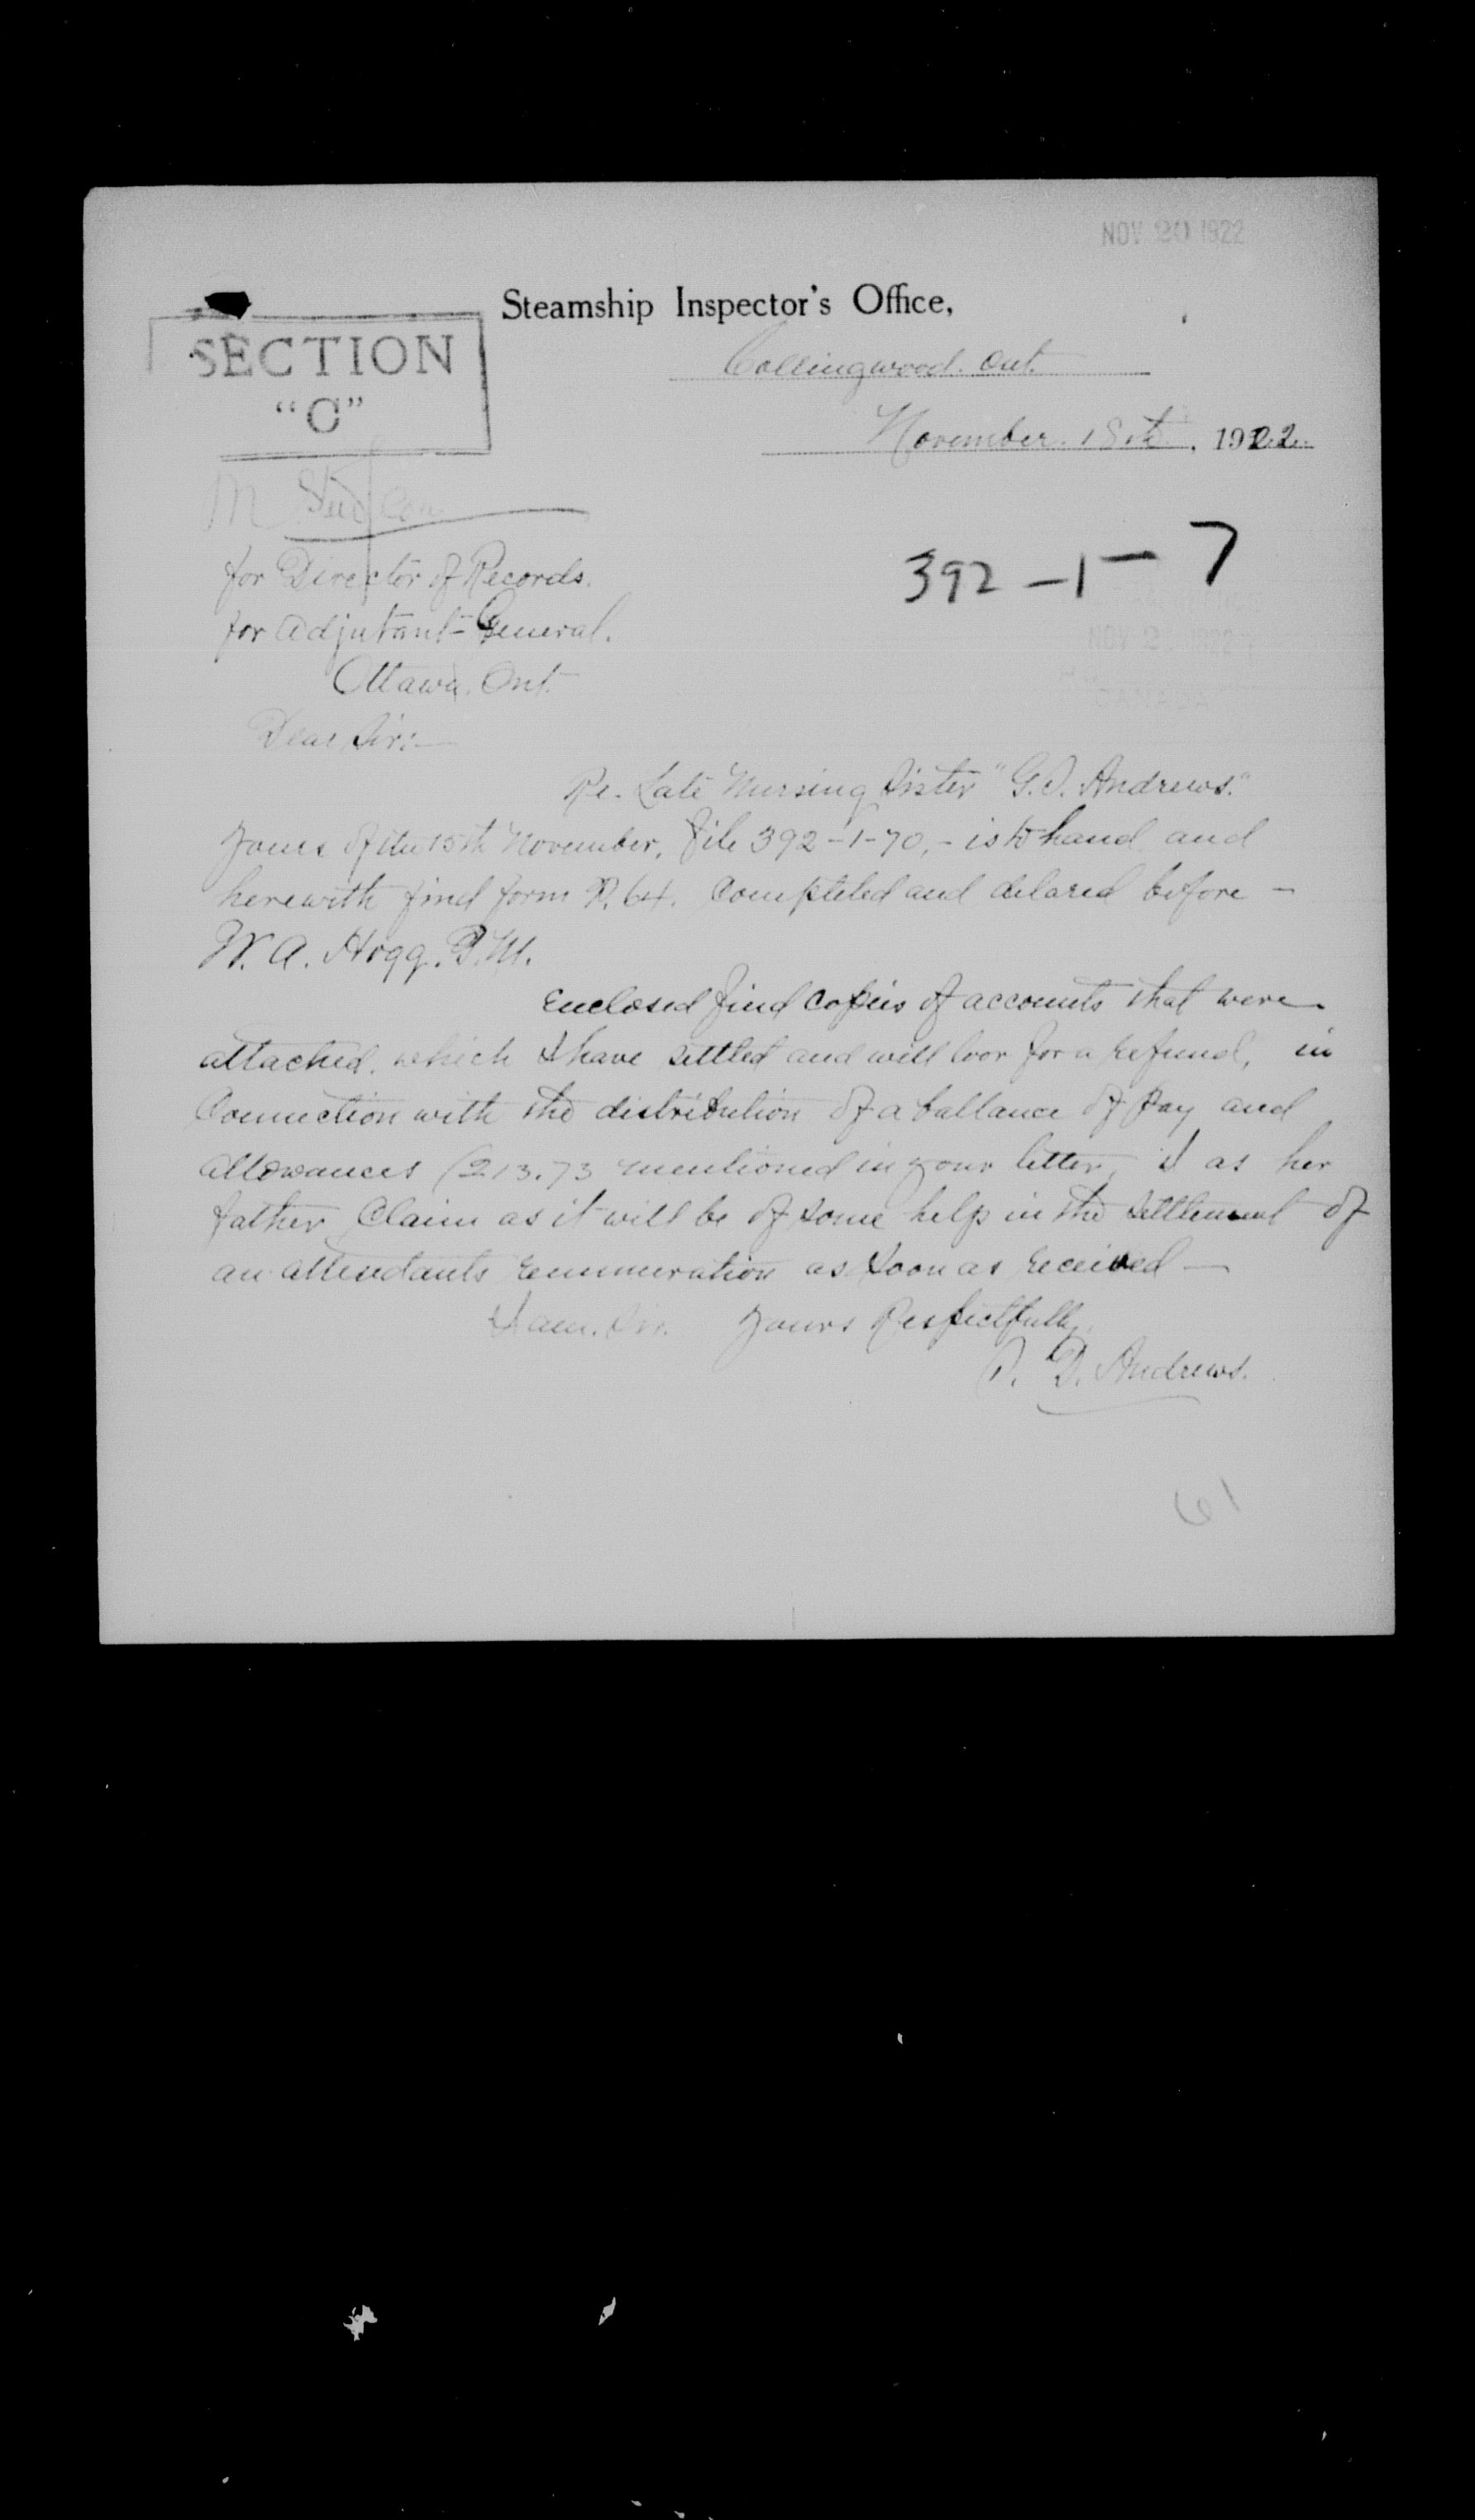 NOV 20 1922
Steamship Inspector's Office,
SECTION
"C"
Collingwood. Ont.
November. 18th, 1922.
for Director of Records.
for Adjutant-General.
392-1-7
Ottawa. Ont.
NOV 2
CANADA
Dear Sir:—
Re. Late Nursing Sister "G. Andrews."
Yours of the 15th November, File 392-1-70,- is to hand and
herewith find form P. 64. Completed and delared before -
W. A. Hogg. P.M.
Enclosed find copies of accounts that were
attached. which I have settled and will loor for a refund, in
Connection with the distribution of a ballance of pay and
allowances (213.73 mentioned in your letter, I as her
father Claim as it will be of some help in the settlement of
an attendants remuneration as soon as received —
I am. Sir. Yours Respectfully,
D. Andrews.
61